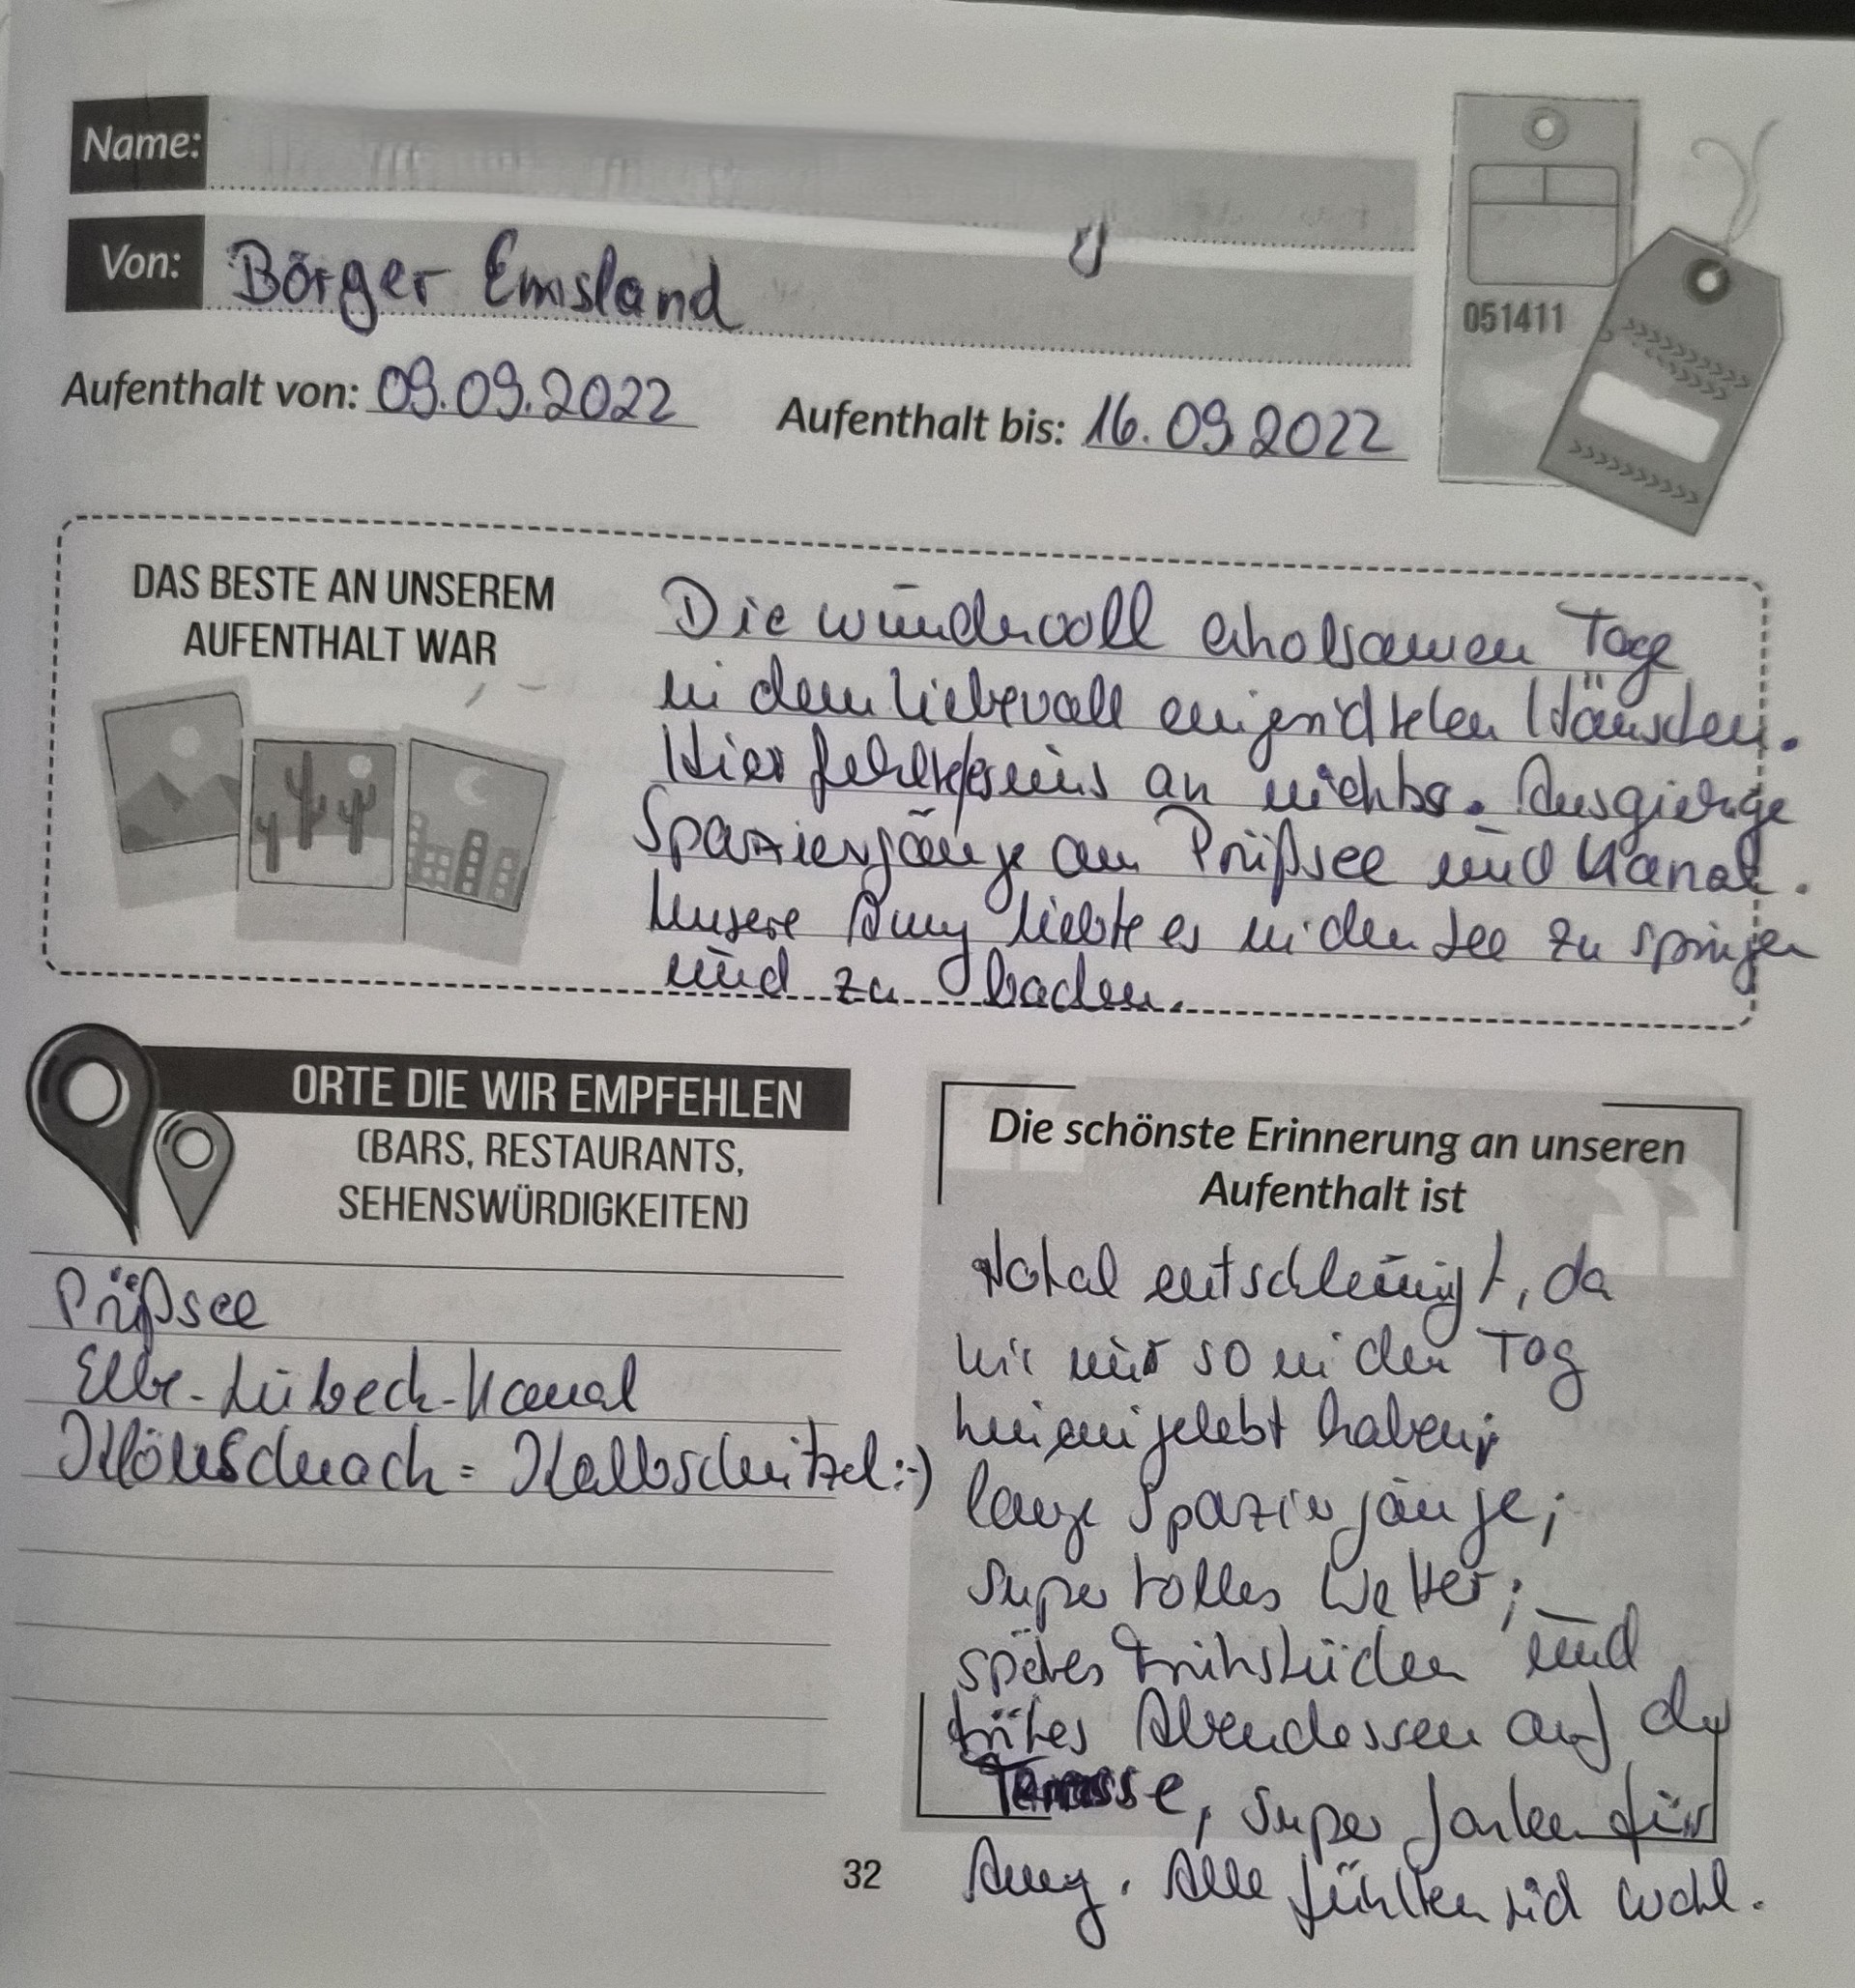 Name:
Von: Börger Emsland
051411
Aufenthalt von: 09.09.2022 Aufenthalt bis: 16.09.2022
DAS BESTE AN UNSEREM
AUFENTHALT WAR
Die wundervoll erholsamen Tage
in dem liebevoll eingerichteten Häuschen.
Hier fehlte es uns an nichts. Ausgiebige
Spaziergänge am Prüßsee und Kanal.
Unsere Amy liebte es in den See zu springen
und zu baden.
ORTE DIE WIR EMPFEHLEN
(BARS, RESTAURANTS,
SEHENSWÜRDIGKEITEN)
Prüßsee
Elbe-Lübeck-Kanal
= Kalbschnitzel :-)
Die schönste Erinnerung an unseren
Aufenthalt ist
total entschleunigt, da
wir nur so in den Tag
hineingelebt haben;
lange Spaziergänge;
super tolles Wetter;
spätes Frühstücken und
frühes Abendessen auf der
Terrasse, super Garten für
Amy. Alle fühlten sich wohl.
32